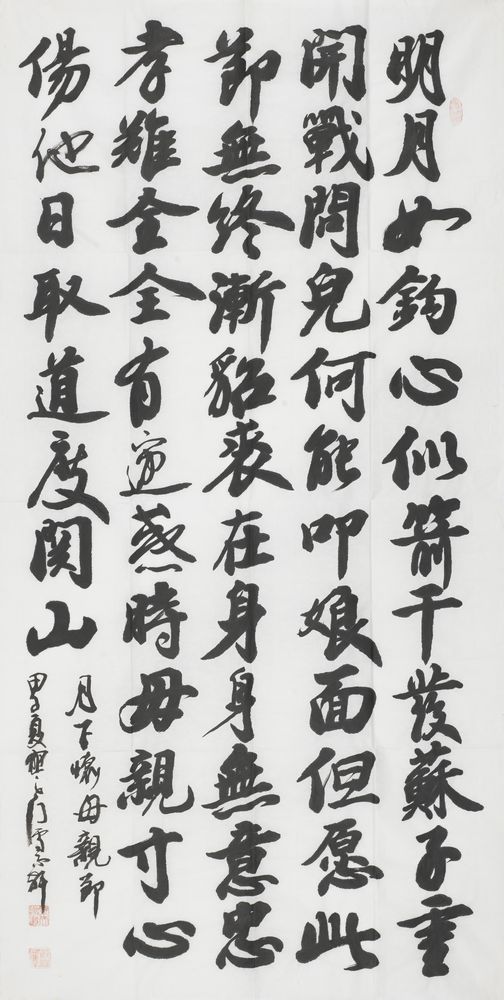 明月如鈎心似箭干發蘇子重
開戰問兒何能叩娘面但愿此
節無終漸貂裘在身身無意忠
孝難全全有時母親寸心
傷他日取道度関山
月下懷母親節
夏